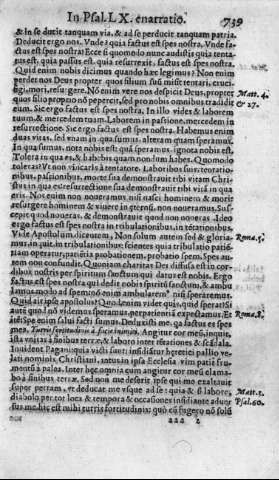 In Psal. LX. enarratio. 739
& in se ducit tanquam via, & ad se perducit tanquam patria.
Deducit ergo nos. Vnde? quia factus est spes nostra. Vnde factus
est spes nostra? Ecce sicut modo audistis quia tentatus
est, quia passus est, quia resurrexit, factus est spes nostra.
Quid enim nobis dicimus quando hæc legimus? Non enim
perdet nos Deus propter quos filium suum misit tentari, crucifigi,
mori, resurgere. Nō enim vere nos despicit Deus, propter
quos filio proprio nō pepercit, sed pro nobis omnibus tradidit
eum. Sic ergo factus est spes nostra. In illo vides & laborem
tuum, & mercedem tuam. Laborem in passione, mercedem in
resurrectione. Sic ergo factus est spes nostra. Habemus enim
duas vitas, sed vnam in qua sumus, alteram quam speramus.
In qua sumus, nota nobis est quā speramus, ignota nobis est.
Tolera in qua es, & habebis quam nondum habes. Quomodo
toleras? Vt non vincaris à tentatore. Laboribus suis, tentationibus,
passionibus, morte sua demonstrauit tibi Christus vitam
in qua es: resurrectione sua demonstrauit tibi vitā in qua
eris. Nos enim non noueramus nisi nasci hominem & mori:
resurgere hominem & viuere in æternū, non noueramus. Suscepit
quod noueras, & demonstrauit quod non noueras. Ideo
ergo factus est spes nostra in tribulationibus, in tētationibus.
Vide Apostolum dicentem, Non solum autem sed & gloriamur,
inquit, in tribulationibus: scientes quia tribulatio patientiam
operatur, patiētia probationem, probatio spem. Spes autem
non confundit. Quoniam charitas Dei diffusa est in cordibus
nostris per spiritum sanctum qui datus est nobis. Ergo
factus est spes nostra qui dedit nobis spiritū sanctum, & ambulamus
modo ad spem: nō enim ambularem' nisi speraremus.
Quid ait ipse apostolus? Quod enim videt quis, quid sperat? Si
autē quod nō videmus speramus, per patientiā expectamus. Et
iterū: Spe enim salui facti sumus. Deduxisti me, qa factus es spes
mea. Turris fortitudinis à facie inimici. Angitur cor meū, inquit
ista vnitas à finibus terræ, & laboro inter tētationes & scādala.
Inuident Pagani quia victi sunt: insidiātur hæretici pallio velati
nominis Christiani, intus in ipsa Ecclesia vim patitur frumentū
à palea. Inter hæc omnia cum angitur cor meū clamabo
à finibus terræ. Sed non me deserit ipse qui me exaltauit
super petram, vt deducat me vsque ad se: quia & si laboro,
diabolo per tot loca & tempora & occasiones insidiante aduersus
me, hic est mihi turris fortitudinis: quò cū fugero nō solū
aaa 2
Matt. 4.
& 27.
Rom. 5.
Rom. 8.
Matt. 1.
Psal. 60.